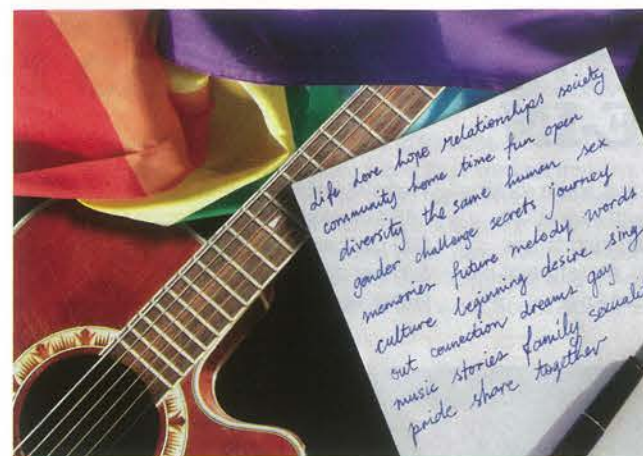 Life Love hope relationships society
community home time fun open
diversity the same human sex
gender challenge secrets journey
memories future melody words
culture beginning desire sing
out connection dreams gay
music stories family
pride share together